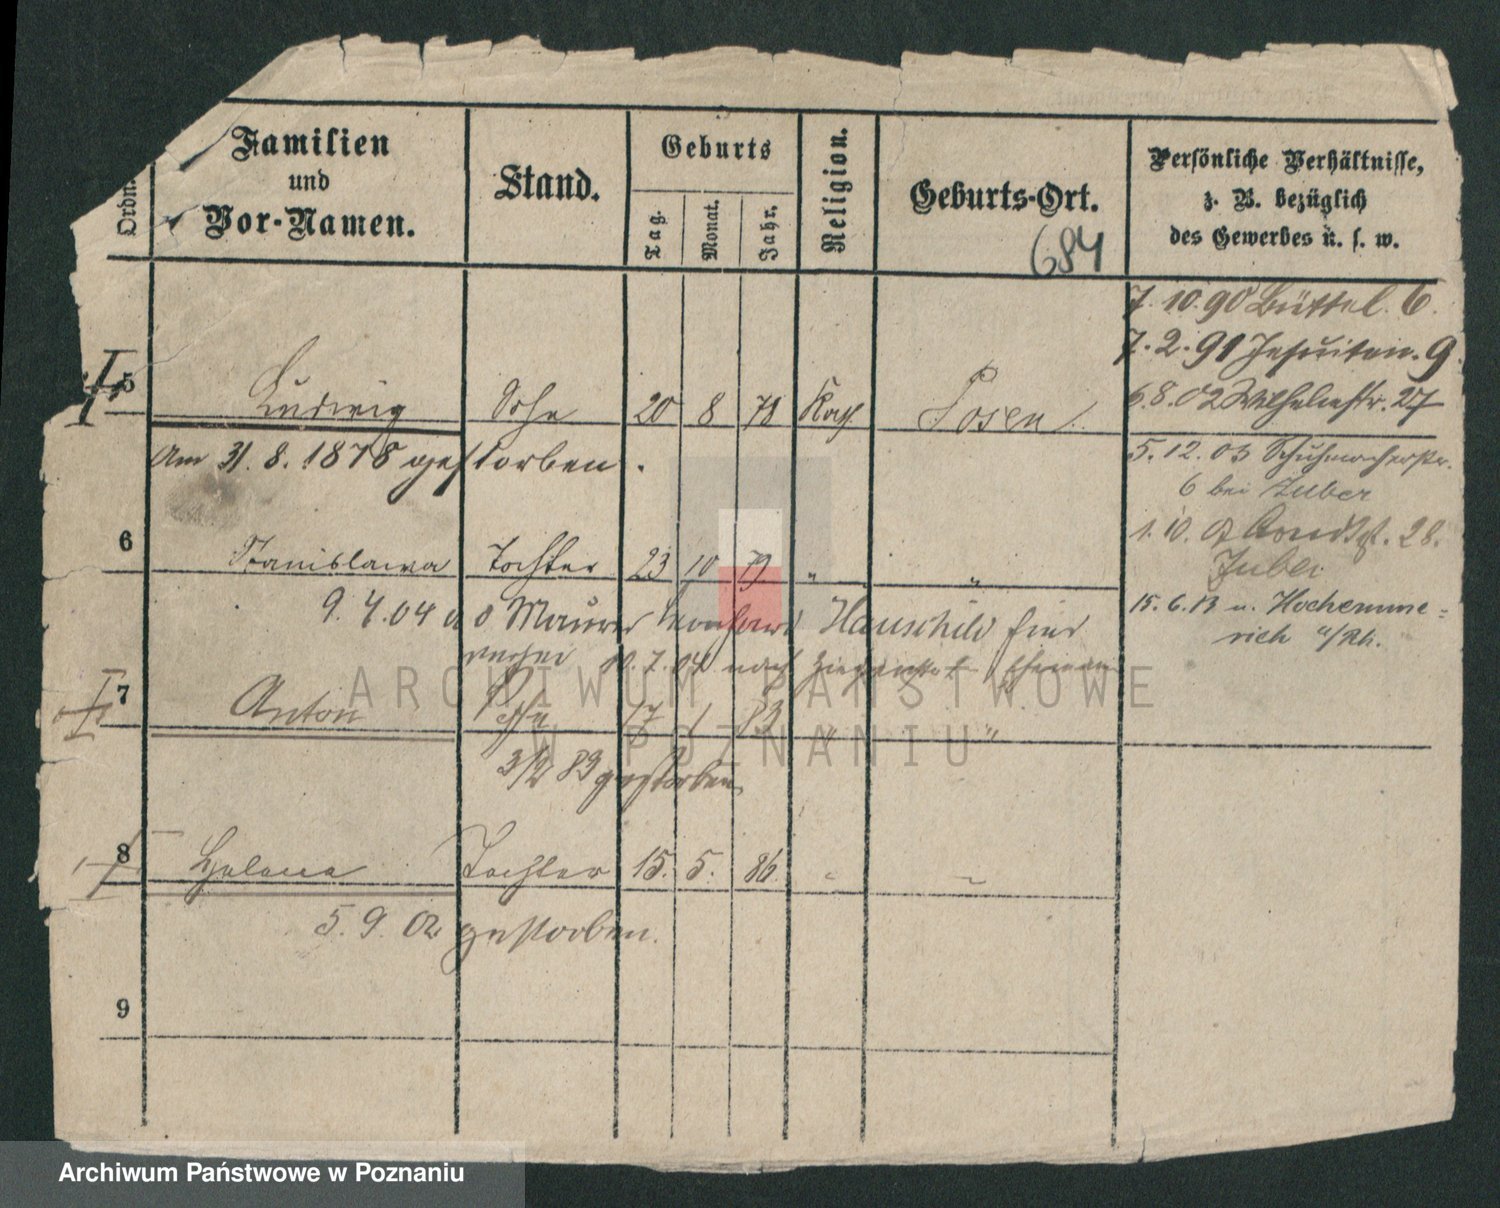 Ordn.
Familien
und
Vor-Namen.
Stand.
Geburts
Tag.
Monat.
Jahr.
Religion.
Geburts-Ort.
684
Persönliche Verhältnisse,
z. B. bezüglich
des Gewerbes u. s. w.
7. 10. 90 Büttel. 6.
7. 2. 91 Jesuiten. 9.
6. 8. 02 Wilhelmstr. 27
5 Ludwig Sohn 20 8 78 Kath. Posen
Am 31. 8. 1878 gestorben.
5. 12. 03 Schuhmacherstr.
6 bei Zuber
6 Stanislawa Tochter 23 10 79 " "
1. 10. 28.
Zuber
9. 7. 04 Maurer Hauschild hier
15. 6. 13 n. Hochemme=
rich a/Rh.
10. 7. 04 nach
7 Anton Sohn 17 1 83 " "
3/2 83 gestorben
8 Helena Tochter 15. 5. 86. " "
5. 9. 02 gestorben.
9
ARCHIWUM PAŃSTWOWE
W POZNANIU
Archiwum Państwowe w Poznaniu